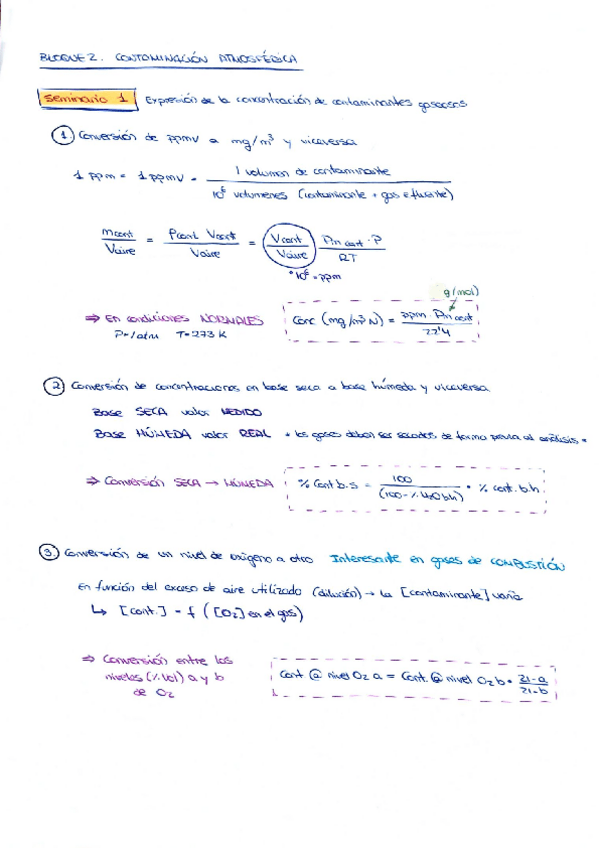 BLOQUE 2. CONTAMINACIÓN ATMOSFÉRICA
Seminario 1 Expresión de la concentración de contaminantes gaseosos
① Conversión de ppmv a mg/m³ y viceversa
1 ppm = 1 ppmv = 1 volumen de contaminante / 10⁶ volúmenes (contaminante + gas efluente)
mcont / Vaire = ρcont Vcont / Vaire = Vcont / Vaire · Pm cont · P / RT
*10⁶ = ppm
g/mol)
⇒ En condiciones NORMALES Conc (mg/m³N) = ppm · Pm cont / 22'4
P=1atm T=273 K
② Conversión de concentraciones en base seca a base húmeda y viceversa
Base SECA valor MEDIDO
Base HÚMEDA valor REAL * los gases deben ser secados de forma previa al análisis *
⇒ Conversión SECA → HÚMEDA % Cont b.s = 100 / (100 - % H₂O b.h) · % cont. b.h.
③ Conversión de un nivel de oxígeno a otro Interesante en gases de COMBUSTIÓN
En función del exceso de aire utilizado (dilución) → la [contaminante] varía
↳ [cont.] = f ([O₂] en el gas)
⇒ Conversión entre los
niveles (% vol) a y b
de O₂
Cont @ nivel O₂ a = Cont. @ nivel O₂ b · 21-a / 21-b